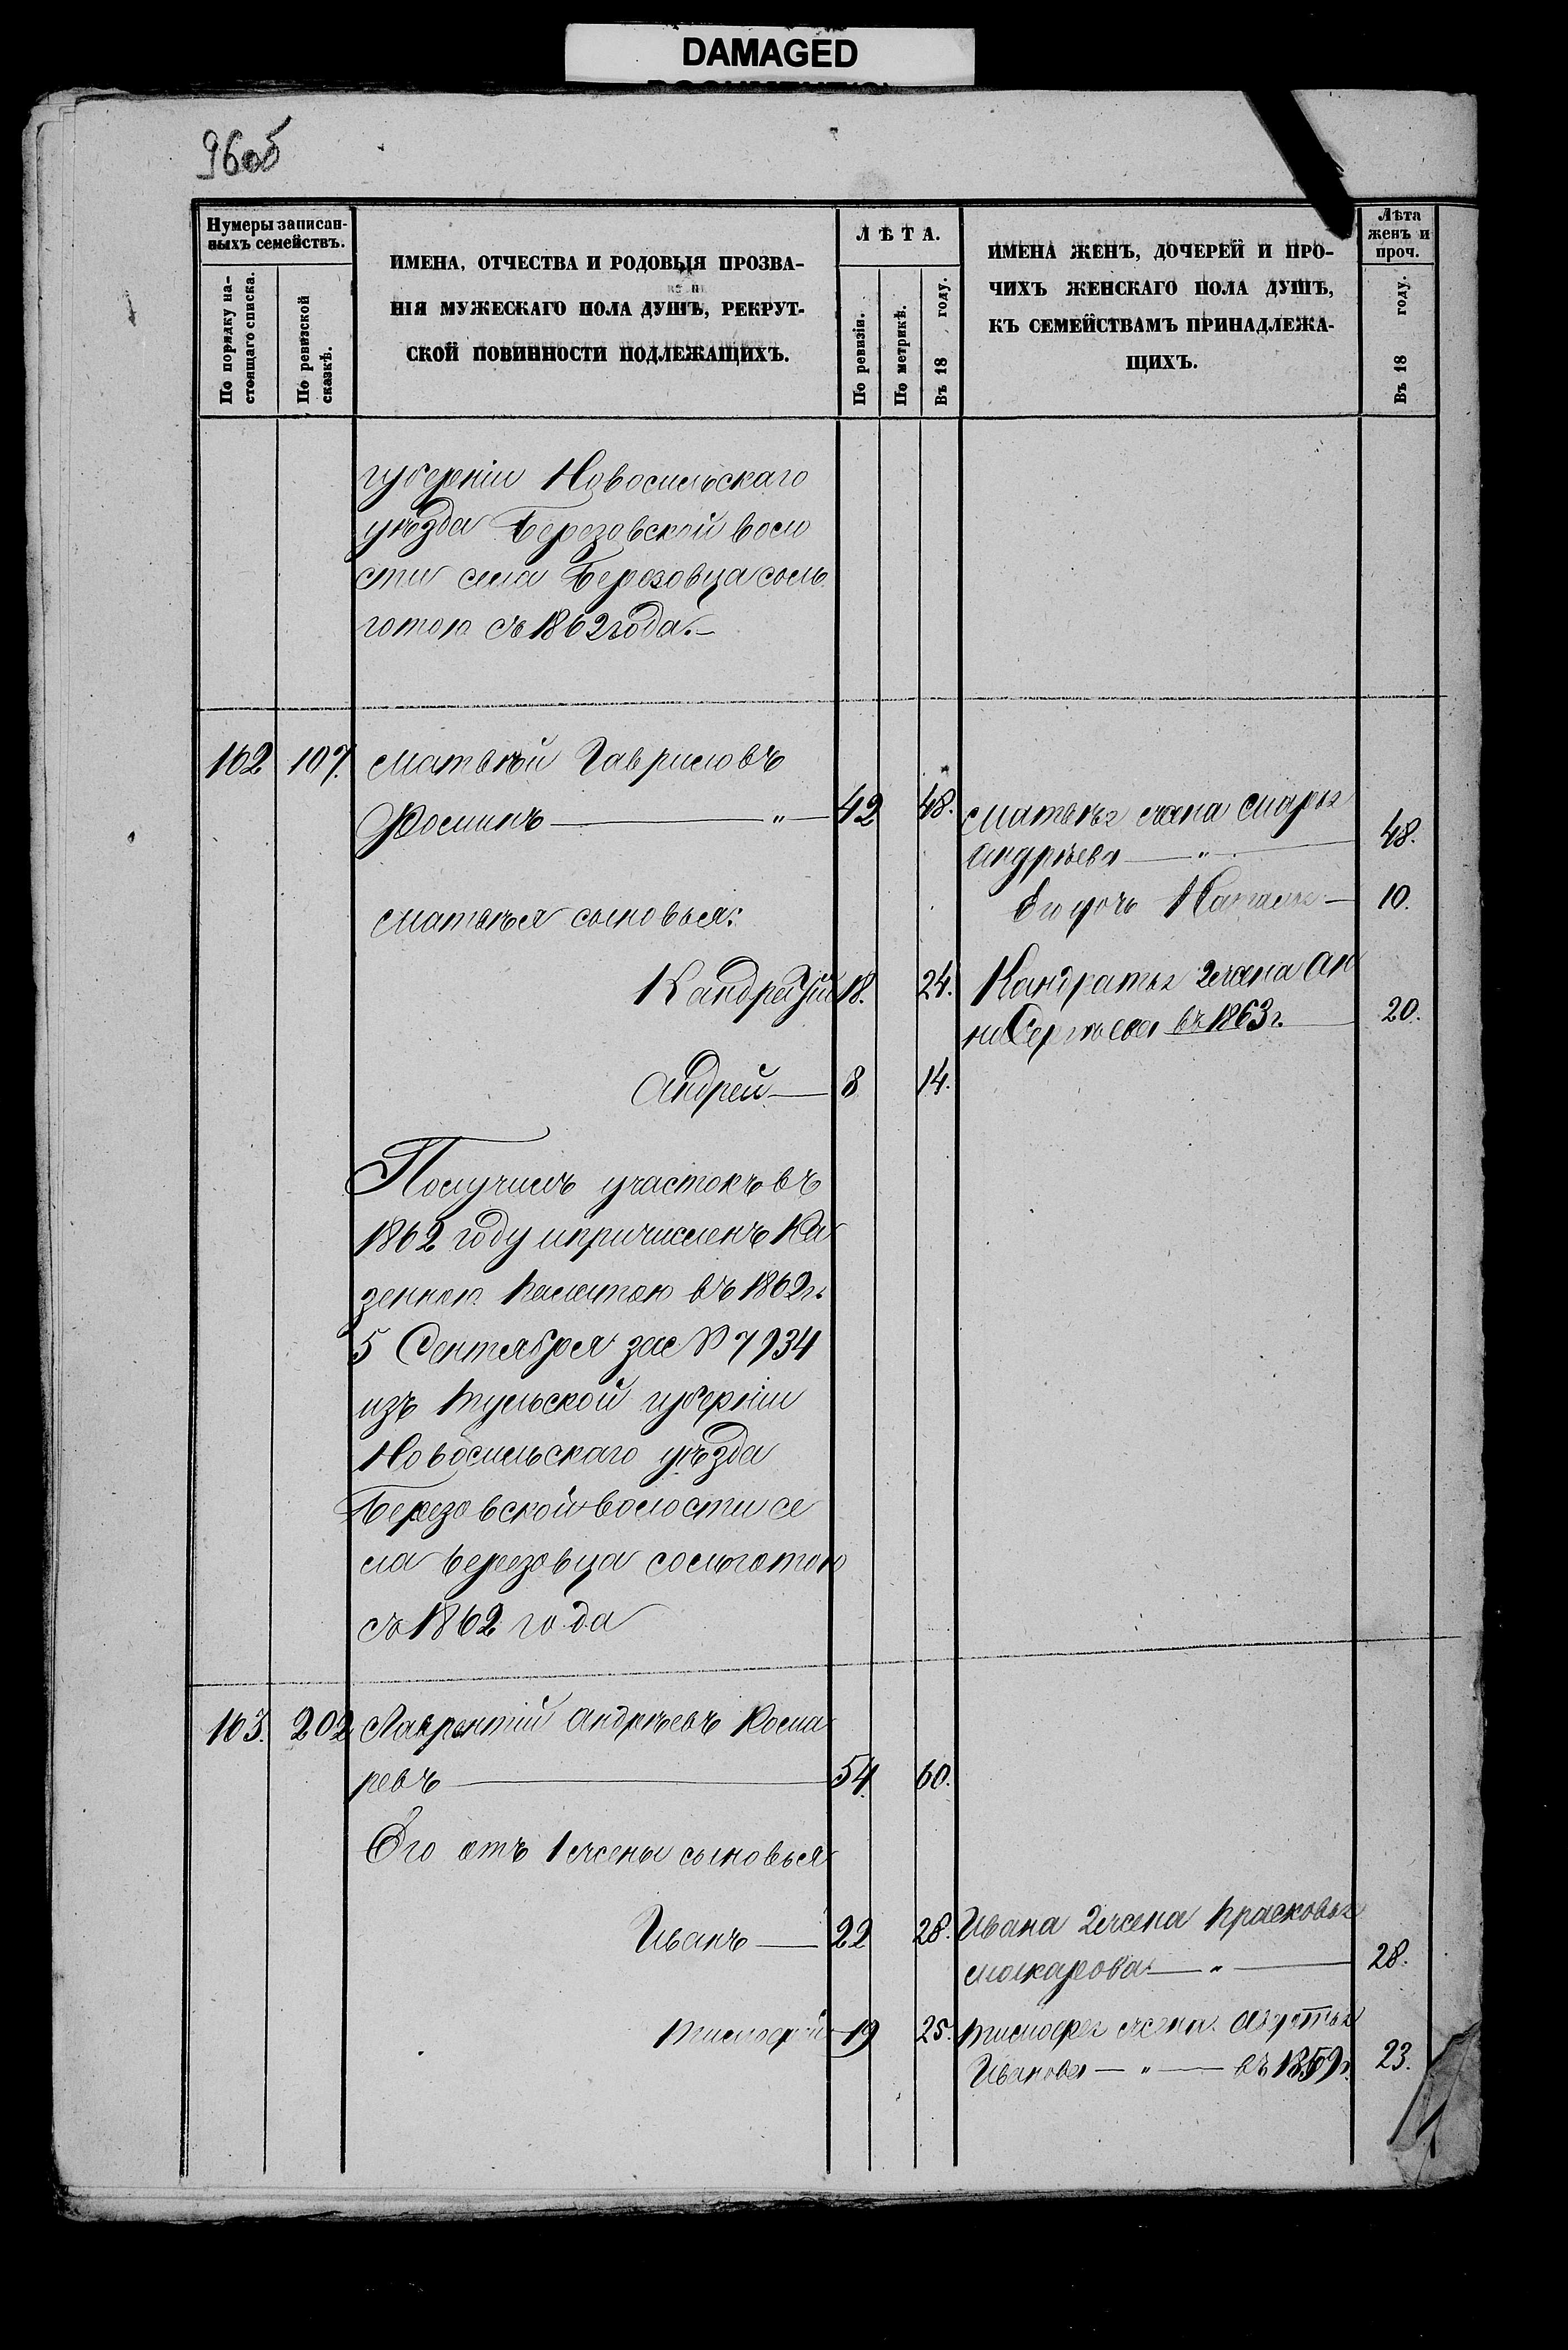 DAMAGED
96об
Нумеры записан-
ныхъ семействъ.
По порядку на-
стоящаго списка.
По ревизской
сказкѣ.
ИМЕНА, ОТЧЕСТВА И РОДОВЫЯ ПРОЗВА-
НІЯ МУЖЕСКАГО ПОЛА ДУШЪ, РЕКРУТ-
СКОЙ ПОВИННОСТИ ПОДЛЕЖАЩИХЪ.
ЛѢТА.
По ревизіи.
По метрикѣ.
Въ 18 году.
ИМЕНА ЖЕНЪ, ДОЧЕРЕЙ И ПРО-
ЧИХЪ ЖЕНСКАГО ПОЛА ДУШЪ,
КЪ СЕМЕЙСТВАМЪ ПРИНАДЛЕЖА-
ЩИХЪ.
Лѣта
женъ и
проч.
Въ 18 году.
губерніи Новосильскаго
уѣзда Березовской воло
сти села Березовца соль
готою съ 1862 года.—
162 107. Матвѣй Гавриловъ
Фоминъ — " — 42 48.
Матвѣя жена Марья
Андрѣева — " — 48.
Его дочь Наталья — 10.
Матвѣя сыновья:
18. 24. Кандратья 2 жена Ан
на Сергѣева въ 1863 г. 20.
Андрей — 8 14.
Получилъ участокъ въ
1862 году и причисленъ Ка
зенною Палатою въ 1862 г.
5 Сентября за № 7934
изъ Тульской губерніи
Новосильскаго уѣзда
Березовской волости се
ла Березовца сольготою
съ 1862 года
163. 202 Лаврентій Андрѣевъ Кома
ревъ — 54. 60.
Его отъ 1 жены сыновья
Иванъ — 22 28. Ивана 2 жена Прасковья
Макарова — " — 28.
Тимофей 19 25. Тимофея жена
Иванова — " — въ 1859 г. 23.